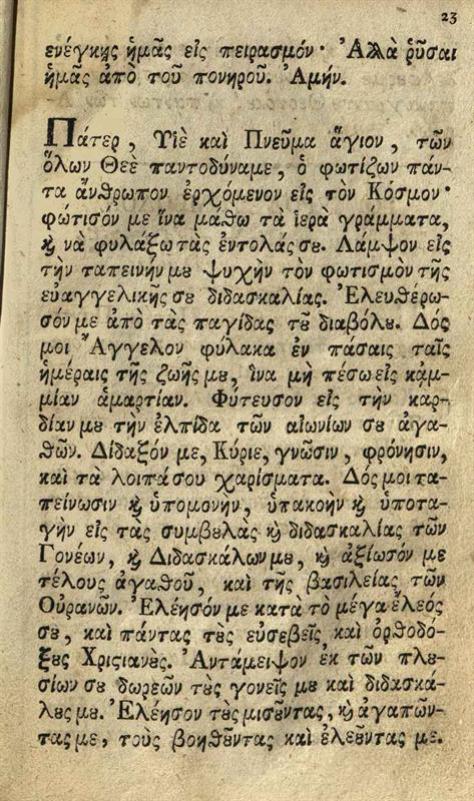 23
ενέγκῃς ἡμᾶς εἰς πειρασμόν· Ἀλλὰ ῥῦσαι
ἡμᾶς ἀπὸ τοῦ πονηροῦ. Ἀμήν.
Πάτερ, Υἱὲ καὶ Πνεῦμα ἅγιον, τῶν
ὅλων Θεὲ παντοδύναμε, ὁ φωτίζων πάν-
τα ἄνθρωπον ἐρχόμενον εἰς τὸν Κόσμον·
φώτισόν με ἵνα μάθω τὰ ἱερὰ γράμματα,
ϗ νὰ φυλάξω τὰς ἐντολάς σȣ. Λάμψον εἰς
τὴν ταπεινήν μȣ ψυχὴν τὸν φωτισμὸν τῆς
εὐαγγελικῆς σȣ διδασκαλίας. Ἐλευθέρω-
σόν με ἀπὸ τὰς παγίδας τȣ͂ διαβόλȣ. Δός
μοι Ἄγγελον φύλακα ἐν πάσαις ταῖς
ἡμέραις τῆς ζωῆς μȣ, ἵνα μὴ πέσω εἰς κᾀμ-
μίαν ἁμαρτίαν. Φύτευσον εἰς τὴν καρ-
δίαν μȣ τὴν ἐλπίδα τῶν αἰωνίων σȣ ἀγα-
θῶν. Δίδαξόν με, Κύριε, γνῶσιν, φρόνησιν,
καὶ τὰ λοιπά σου χαρίσματα. Δός μοι τα-
πείνωσιν ϗ ὑπομονὴν, ὑπακοὴν ϗ ὑποτα-
γὴν εἰς τὰς συμβȣλὰς ϗ διδασκαλίας τῶν
Γονέων, ϗ Διδασκάλων μȣ, ϗ ἀξίωσόν με
τέλους ἀγαθοῦ, καὶ τῆς βασιλείας τῶν
Οὐρανῶν. Ἐλέησόν με κατὰ τὸ μέγα ἔλεός
σȣ, καὶ πάντας τȣ̀ς εὐσεβεῖς καὶ ὀρθοδό-
ξȣς Χριϛιανȣ́ς. Ἀντάμειψον ἐκ τῶν πλȣ-
σίων σȣ δωρεῶν τȣ̀ς γονεῖς μȣ καὶ διδασκά-
λȣς μȣ. Ἐλέησον τȣ̀ς μισȣ͂ντας, ϗ ἀγαπῶν-
τας με, τοὺς βοηθȣ͂ντας καὶ ἐλεȣ͂ντας με.